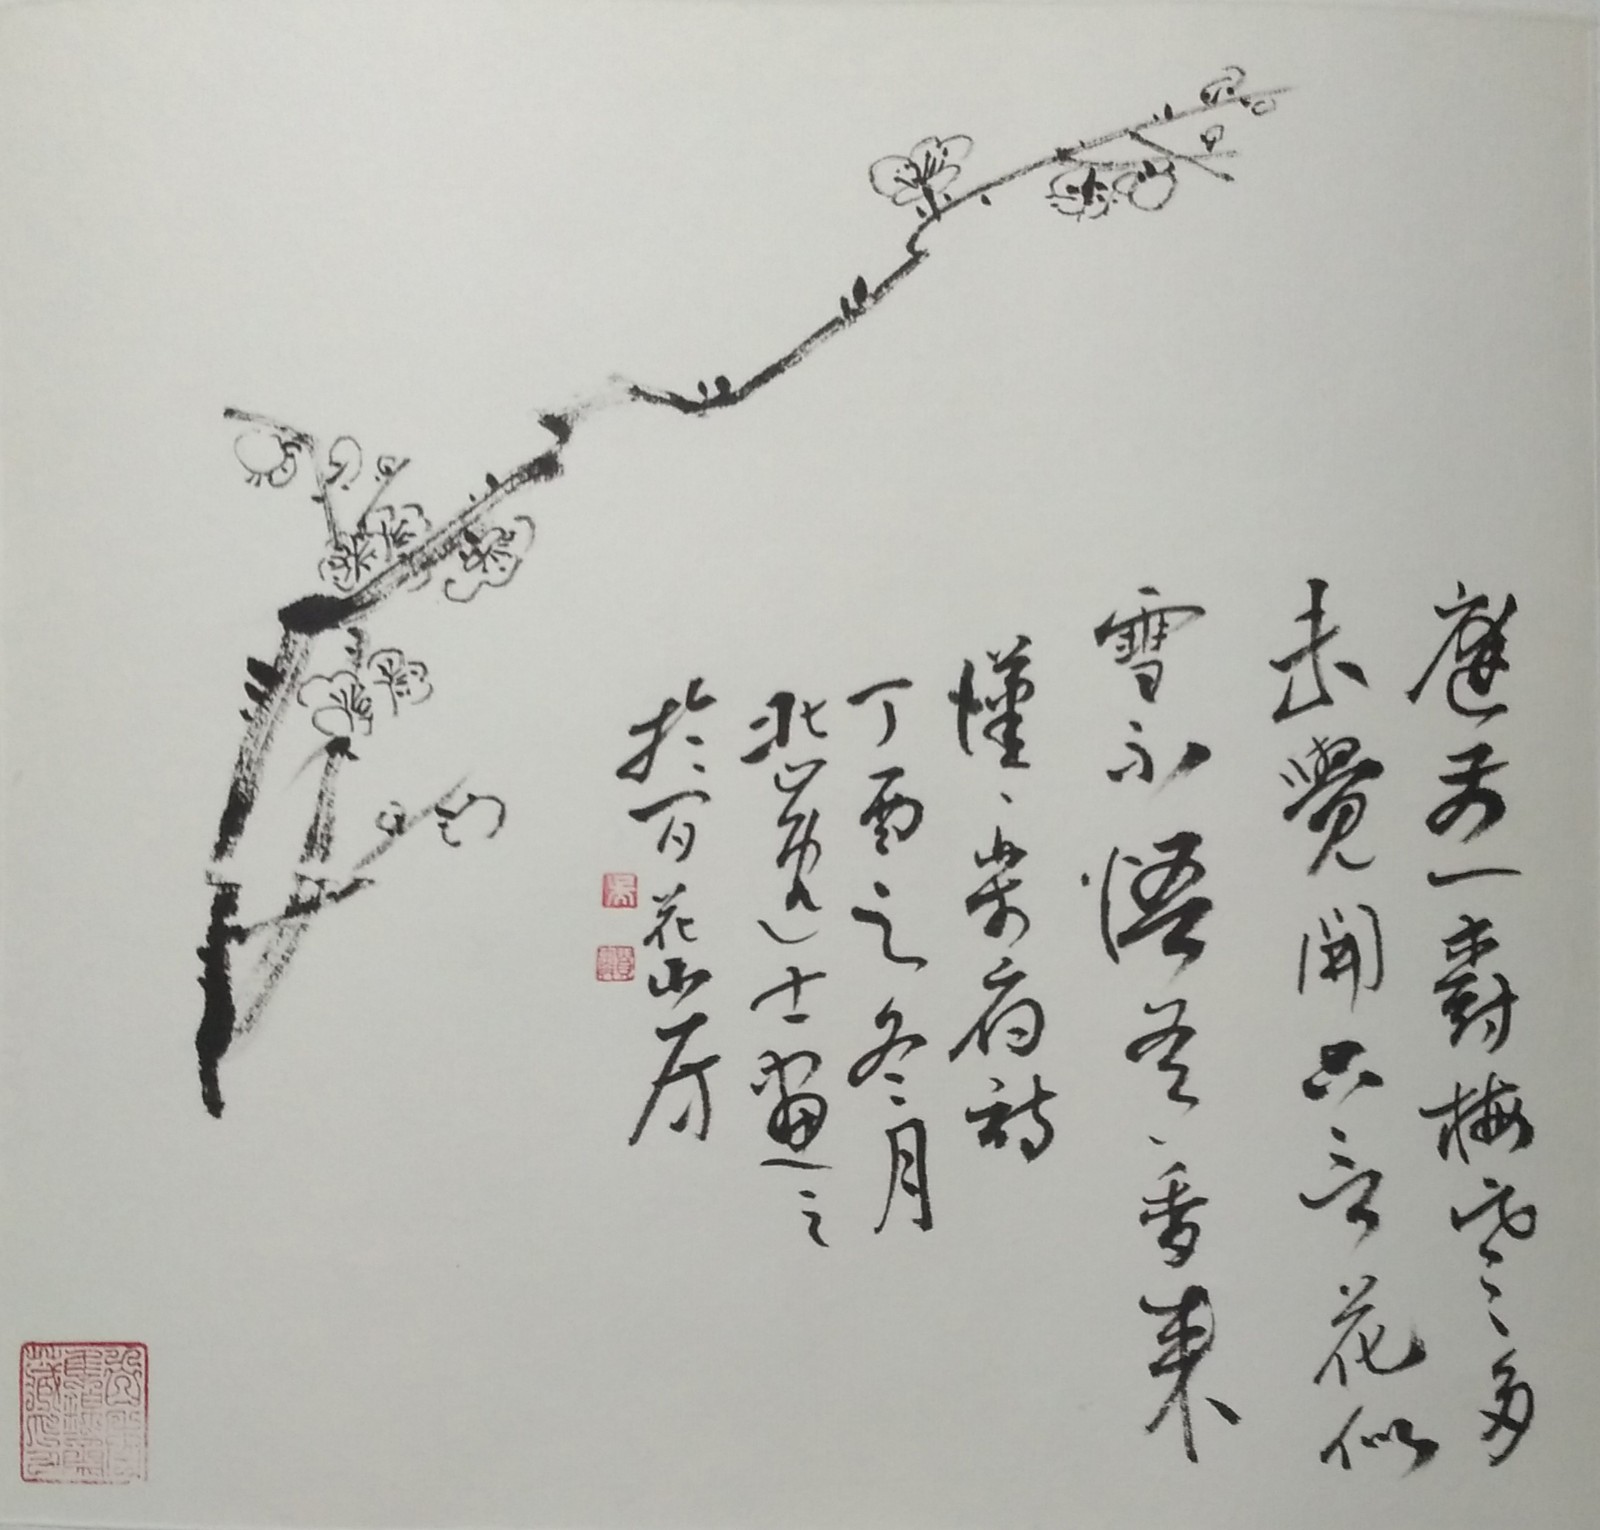 庭前一樹梅寒多
未覺開只言花似
雪不悟香來
詩
丁酉之冬月
北道士畫之
於百花山房